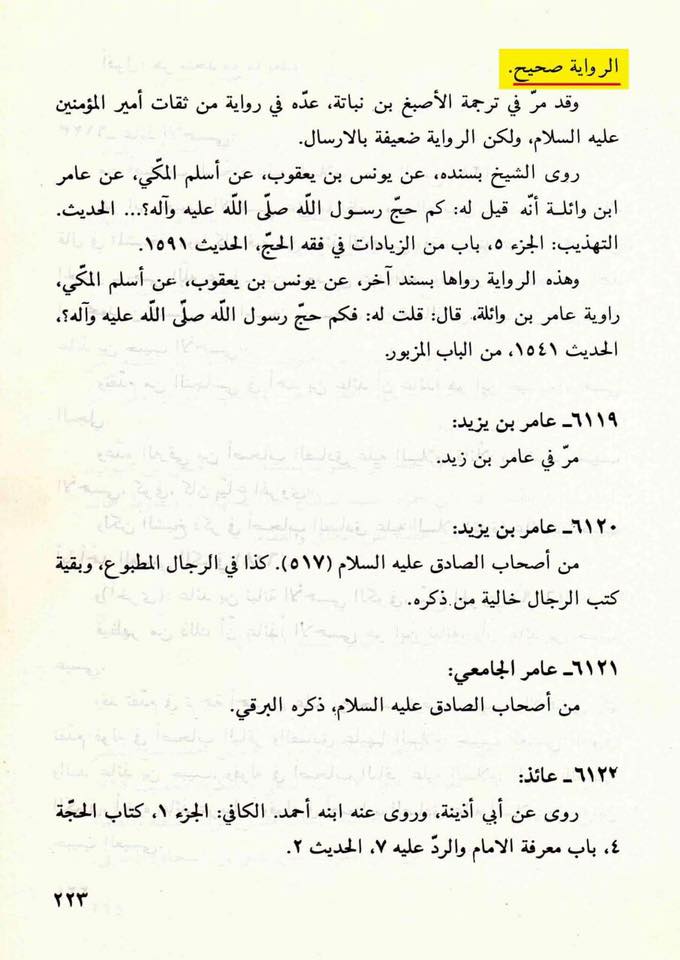 الرواية صحيح.
وقد مرّ في ترجمة الأصبغ بن نباتة، عدّه في رواية من ثقات أمير المؤمنين
عليه السلام، ولكن الرواية ضعيفة بالارسال.
روى الشيخ بسنده، عن يونس بن يعقوب، عن أسلم المكّي، عن عامر
ابن واثلة أنّه قيل له: كم حجّ رسول اللّه صلّى اللّه عليه وآله؟... الحديث.
التهذيب: الجزء ٥، باب من الزيادات في فقه الحجّ، الحديث ١٥٩١.
وهذه الرواية رواها بسند آخر، عن يونس بن يعقوب، عن أسلم المكّي،
راوية عامر بن واثلة، قال: قلت له: فكم حجّ رسول اللّه صلّى اللّه عليه وآله؟،
الحديث ١٥٤١، من الباب المزبور.
٦١١٩ـ عامر بن يزيد:
مرّ في عامر بن زيد.
٦١٢٠ـ عامر بن يزيد:
من أصحاب الصادق عليه السلام (٥١٧). كذا في الرجال المطبوع، وبقية
كتب الرجال خالية من ذكره.
٦١٢١ـ عامر الجامعي:
من أصحاب الصادق عليه السلام، ذكره البرقي.
٦١٢٢ـ عائذ:
روى عن أبي أذينة، وروى عنه ابنه أحمد. الكافي: الجزء ١، كتاب الحجّة
٤، باب معرفة الامام والردّ عليه ٧، الحديث ٢.
٢٢٣